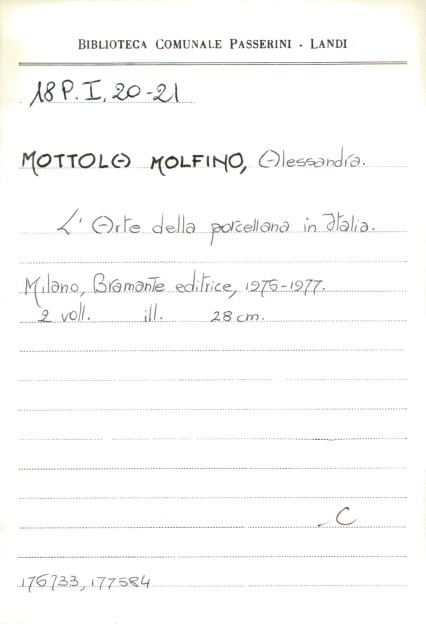 BIBLIOTECA COMUNALE PASSERINI - LANDI
18 P. I. 20-21
MOTTOLA MOLFINO, Alessandra.
L' Arte della porcellana in Italia.
Milano, Bramante editrice, 1976-1977.
2 voll. ill. 28 cm.
C
176733, 177584